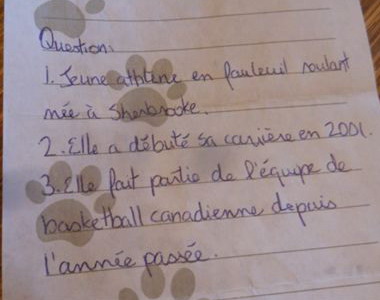 Question:
1. Jeune athlène en fauteuil roulant
née à Sherbrooke.
2. Elle a débuté sa carrière en 2001.
3. Elle fait partie de l'équipe de
basketball canadienne depuis
l'année passée.